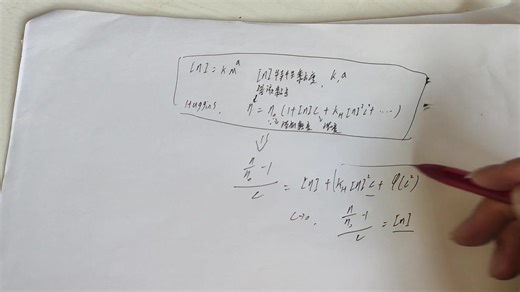 [η] = k M^a  [η] 特性黏度, k, a
溶液黏度
Huggins, η = η₀ (1 + [η]c + k_H [η]²c² + ⋯)
溶剂黏度 浓度
(η/η₀ - 1)/c = [η] + k_H [η]²c + O(c²)
c→0, (η/η₀ - 1)/c = [η]